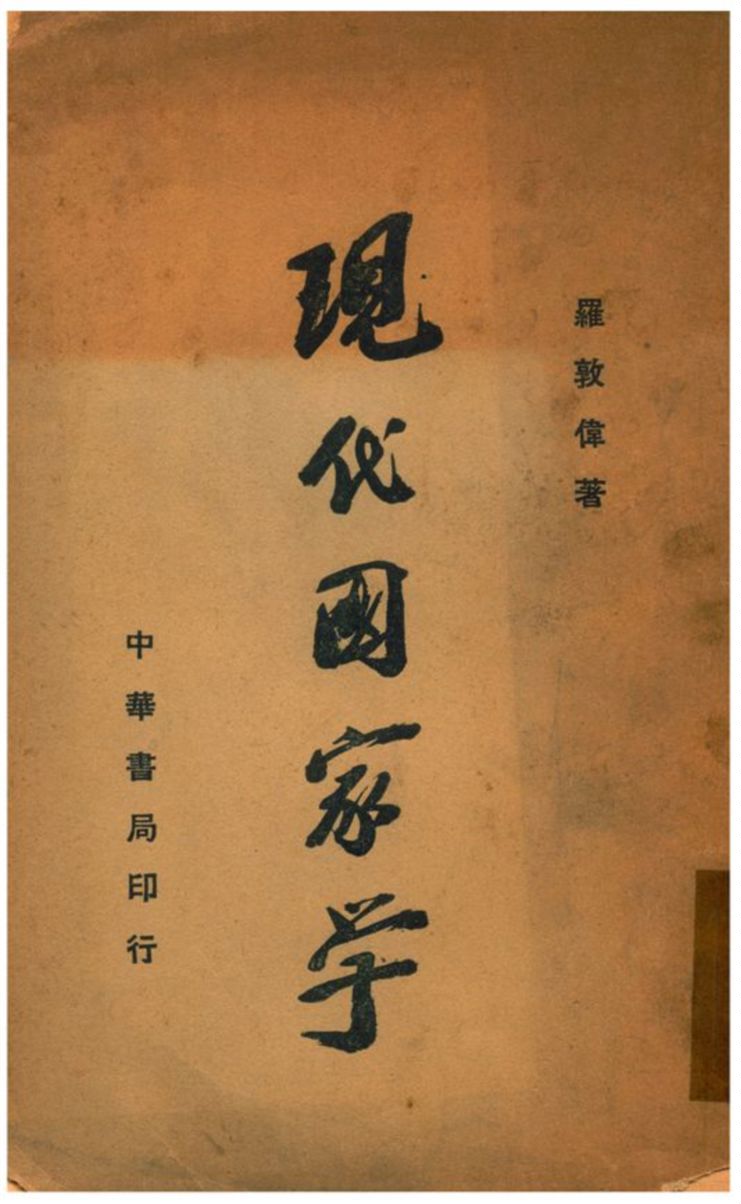 羅敦偉著
現代國家学
中華書局印行